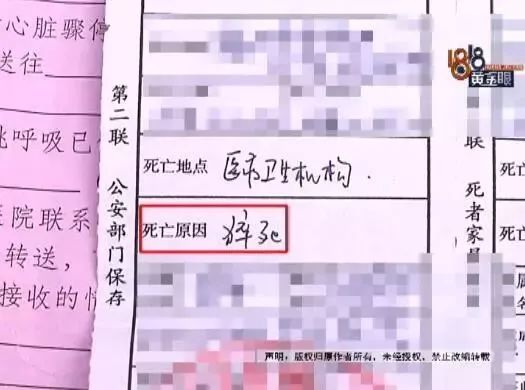 心脏骤停
送往
呼吸已
医院联系
转送，
接收的情
第二联 公安部门保存
死亡地点 医疗卫生机构.
死亡原因 猝死
联 死者家属
1818
黄金眼
声明，版权归原作者所有，未经授权，禁止改编转载